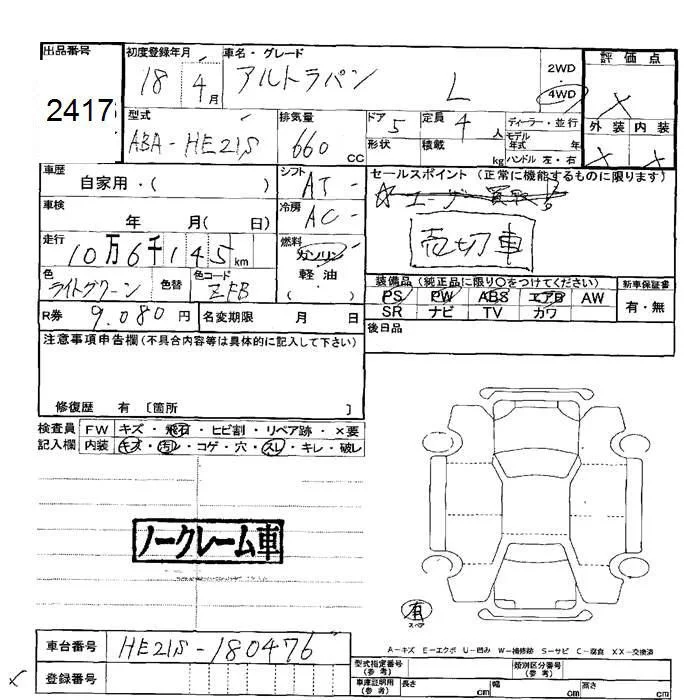 出品番号 初度登録年月 車名・グレード 評価点
2417 18 4月 アルトラパン L 2WD・4WD ×
型式 排気量 ドア 5 定員 4人 ディーラー・並行 外装 内装
ABA-HE21S 660cc 形状 積載 kg モデル年式 年 × ×
ハンドル 左・右
車歴 自家用・( ) シフト AT- セールスポイント(正常に機能するものに限ります)
車検 年 月( 日) 冷房 AC-
売切車
走行 10万6千145km 燃料 ガソリン 軽油 ・( )
色 ライトグリーン 色替 色コード ZFB
装備品(純正品に限り○をつけてください) 新車保証書
PS PW ABS エアB AW 有・無
SR ナビ TV カワ
R券 9.080円 名変期限 月 日 後日品
注意事項申告欄(不具合内容等は具体的に記入して下さい)
修復歴 有 〔箇所 〕
検査員 FW キズ・飛石・ヒビ割・リペア跡・×要
記入欄 内装 キズ・汚レ・コゲ・穴・スレ・キレ・破レ
ノークレーム車
有
スペア
A-キズ E-エクボ U-凹み W-補修跡 S-サビ C-腐食 XX-交換済
車台番号 HE21S-180476
登録番号
型式指定番号(参考) 類別区分番号(参考)
車庫証明用(参考) 長さ cm 幅 cm 高さ cm